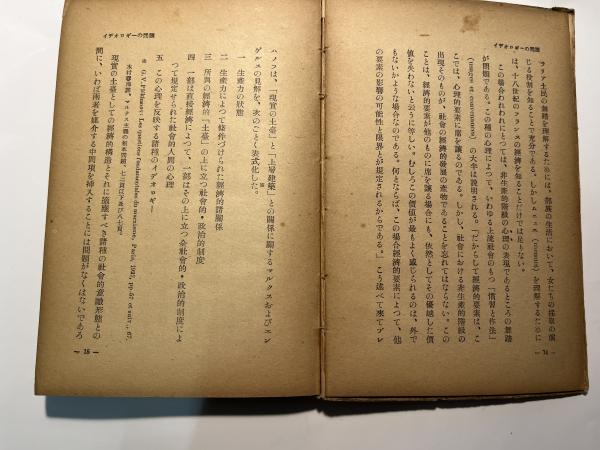 イデオロギーの問題
ラリア土民の舞踏を理解するためには、部族の生活において、女たちの採取の演
じる役割を知ることで充分である。しかしムニュエ（menuet）を理解するために
は、十八世紀のフランスの經濟を知ることだけでは足りない。
この場合われわれにとつては、非生産的階級の心理の表現であるところの舞踏
が問題である。この種の心理によつて、いわゆる上流社會のもつ「慣習と作法」
の大半は説明される。「だからして經濟的要素は、こ
こでは、心理的要素に席を讓るのである。しかし、社會における非生産的階級の
出現そのものが、社會の經濟的發展の産物であることを忘れてはならない。この
ことは、經濟的要素が他のものに席を讓る場合にも、依然としてその優越した價
値を失わないと云うに等しい。むしろこの價値が最もよく感じられるのは、外で
もないかような場合なのである。何となれば、この場合經濟的要素によつて、他
の要素の影響の可能性と限界とが規定されるからである。」こう述べて來てプレ
— 74
イデオロギーの問題
ハノフは、「現實の土臺」と「上層建築」との關係に關するマルクスおよびエン
ゲルスの見解を、次のごとく表式化した。
一　生産力の狀態
二　生産力によつて條件づけられた經濟的諸關係
三　所與の經濟的「土臺」の上に立つ社會的・政治的制度
四　一部は直接經濟によつて、一部はその上に立つ全社會的・政治的制度によ
つて規定せられた社會的人間の心理
五　この心理を反映する諸種のイデオロギー
註　G. V. Plékhanov: Les questions fondamentales du marxisme, Paris, 1927, pp. 57 et suiv., 67.
木村春海譯、マルクス主義の根本問題、七三頁以下及び八七頁。
現實の土臺としての經濟的構造とそれに適應すべき諸種の社會的意識形態との
間に、いわば兩者を媒介する中間項を挿入することには問題がなくはないであろ
— 75 —